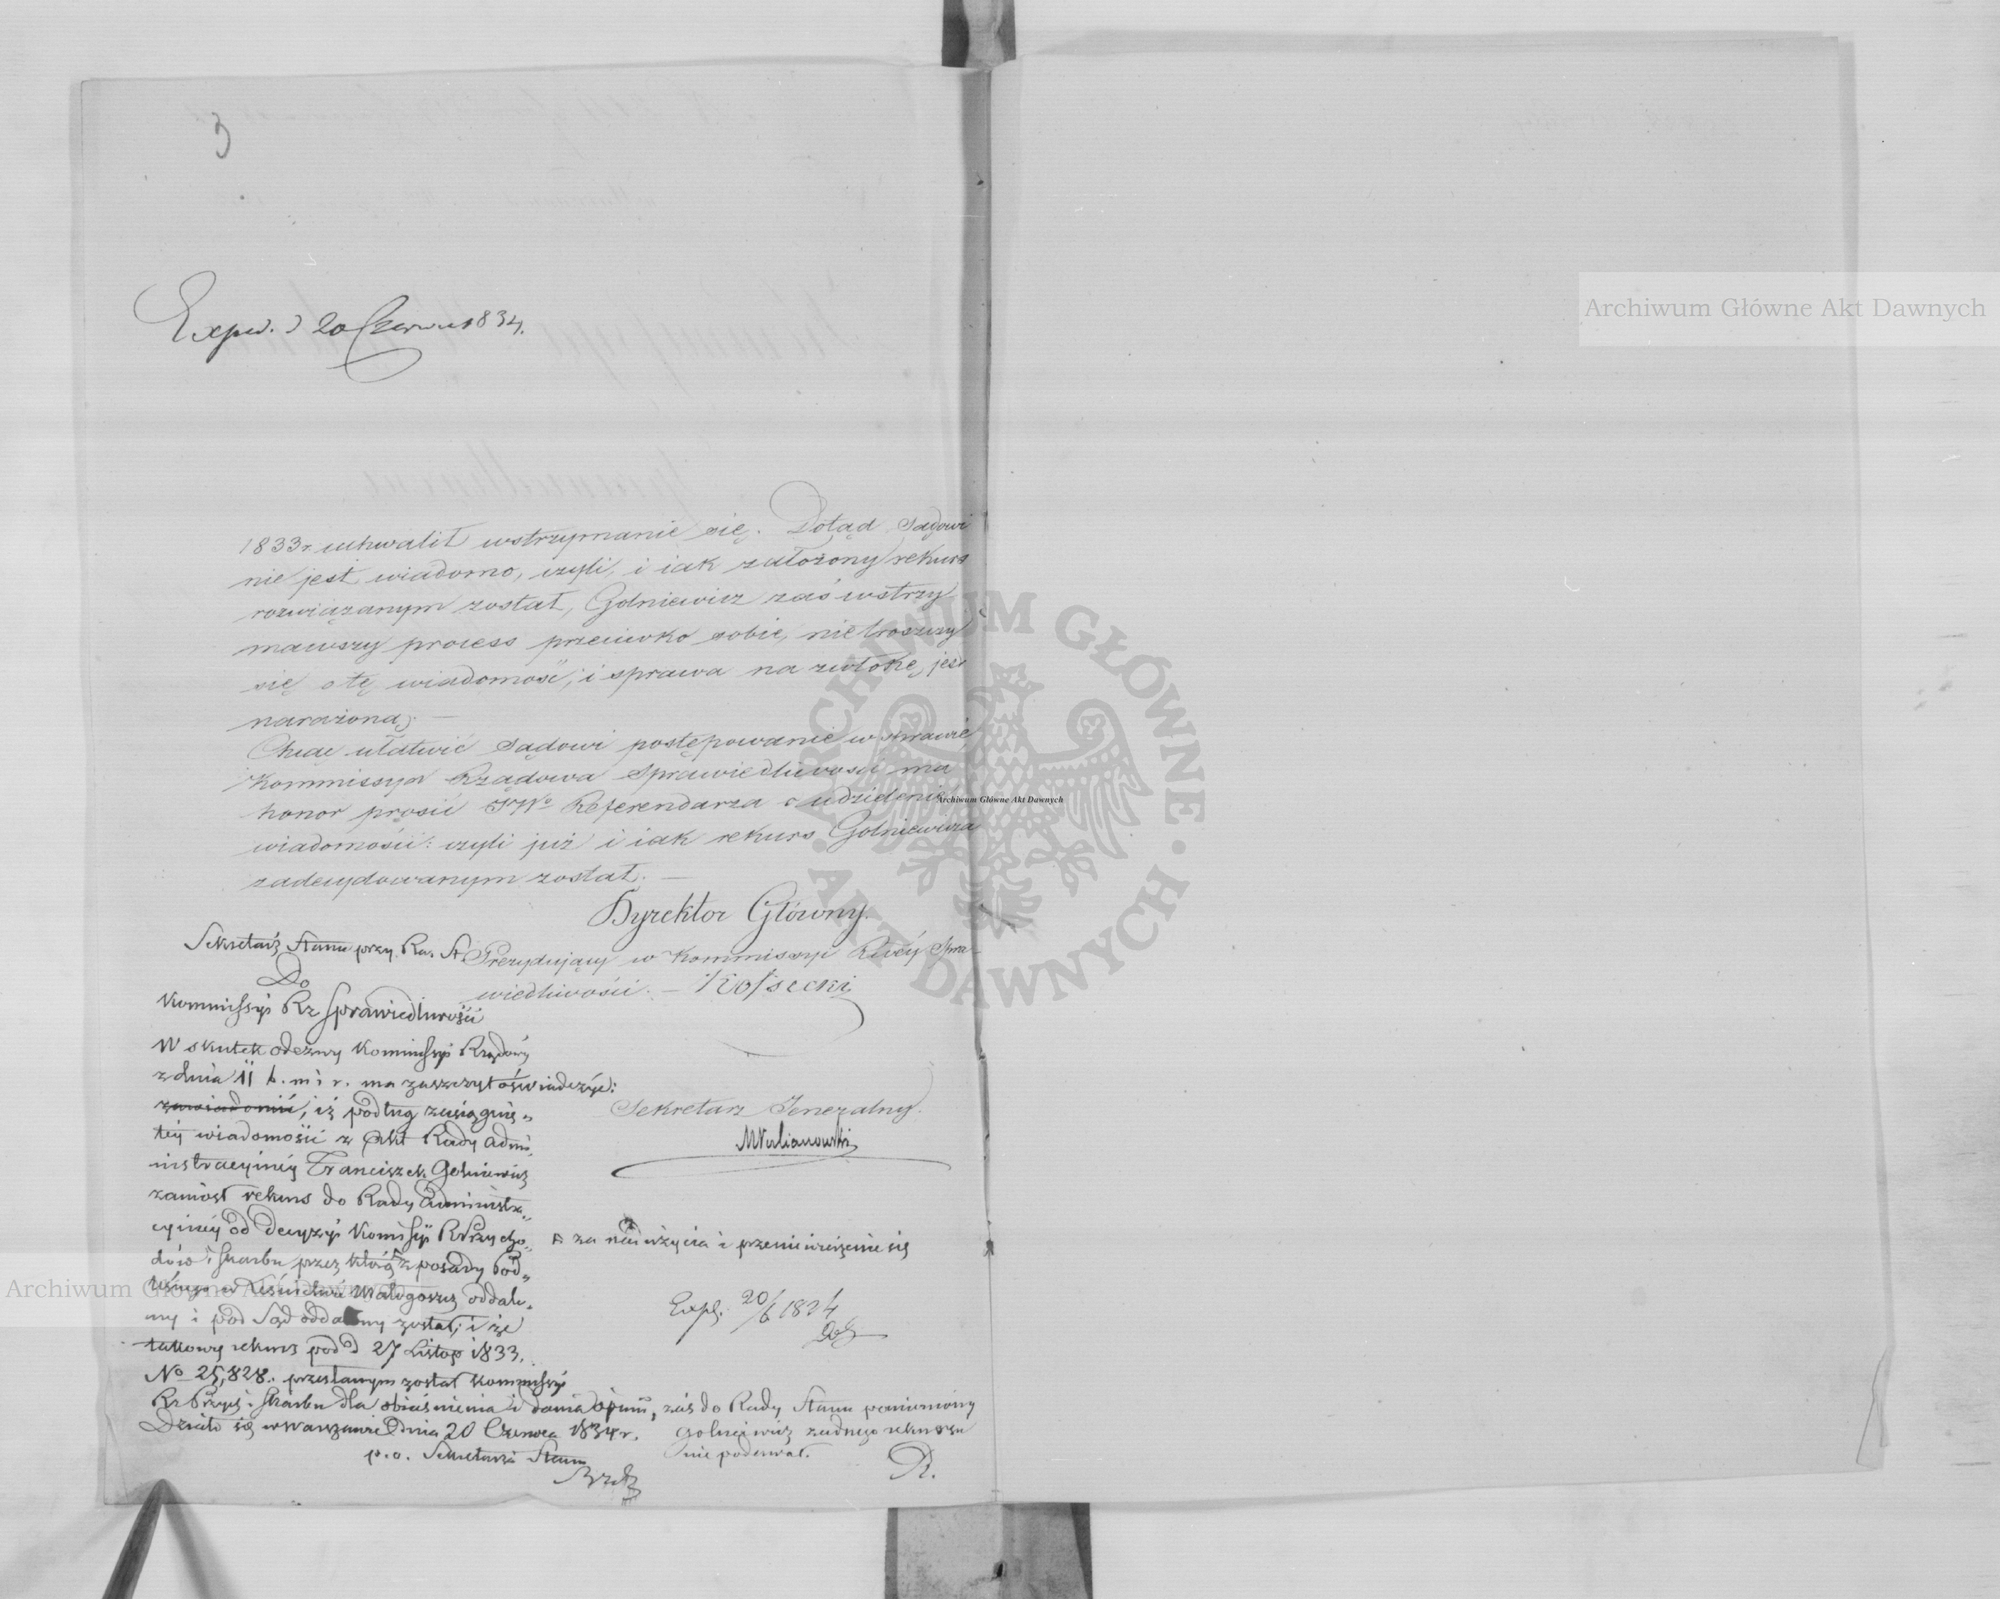 3
Exped. d 20 Czerwca 1834.
1833 r. uchwalił wstrzymanie się. Dotąd Sądowi
nie jest wiadomo, czyli, i iak założony rekurs
rozwiązanym został, Golniewicz zaś wstrzy
mawszy process przeciwko sobie, nie troszczy
się o tę wiadomość, i sprawa na zwłokę, jest
narażoną. —
Chcąc ułatwić Sądowi postępowanie w sprawie,
Kommissyia Rządowa Sprawiedliwości ma
honor prosić JWo Referendarza o udzielenie
wiadomości: czyli już i iak rekurs Golniewicza
zadecydowanym został. —
Dyrektor Główny
Prezydujący w Kommissyi Rwéy Spra-
wiedliwości. — Kossecki
Sekretarz Jeneralny.
Sekretarz Stanu przy Ra. St.
Do
Kommissyi Rz Sprawiedliwości
W skutek odezwy Kommissyi Rządowéy
z dnia 11 b. m i r. ma zaszczyt oświadczyć:
zawiadomić, iż podług zasiągnię-
téy wiadomości z Akt Rady Admi
nistracyinéy Franciszek Golniewicz
zaniósł rekurs do Rady Administra-
cyinéy od decyzyi Komissyi R Przycho-
dów i Skarbu przez którą z posady Pod-
leśnego w Leśnictwie Małogoszcz oddalo-
ny i pod Sąd oddany został; i że
takowy rekurs pod d 27 Listop 1833.
No 25,828. przesłanym został Kommissyi
Rz Przyc i Skarbu dla obiaśnienia i dania opinii, zaś do Rady Stanu pomieniony
Golniewicz żadnego rekursu
nie podawał.
Działo się w Warszawie dnia 20 Czerwca 1834 r.
p. o. Sekretarza Stanu
za nadużycia i przeniewierzenie się
Exp. 20/6 1834
Archiwum Główne Akt Dawnych
Archiwum Główne Akt Dawnych
Archiwum Główne Akt Dawnych
ARCHIWUM GŁÓWNE · AKT DAWNYCH ·